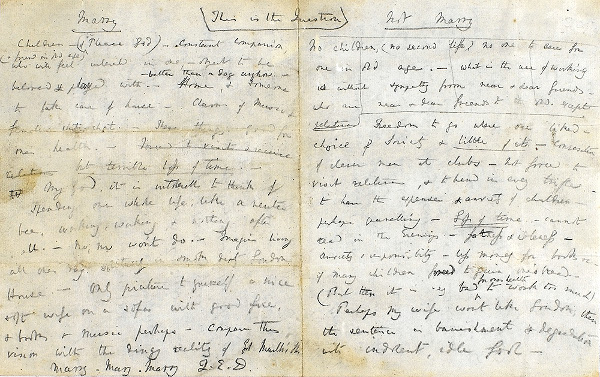 Marry
(This is the Question)
Not Marry
Children — (if Please God) — Constant companion
(& friend in old age)
who will feel interested in one — object to be
— better than a dog anyhow. —
beloved & played with. — Home, & someone
to take care of house — Charms of music &
female chit-chat. — These things good for
one's health. — Forced to visit & receive
relations but terrible loss of time. —
My God, it is intolerable to think of
spending one's whole life, like a neuter
bee, working, working, & nothing after
all. — No, no won't do. — Imagine living
all one's day solitary in smoky dirty London
House. — Only picture to yourself a nice
soft wife on a sofa with good fire,
& books & music perhaps — Compare this
vision with the dingy reality of Grt. Marlbro' St.
Marry — Marry — Marry Q.E.D.
No children, (no second life), no one to care for
one in old age. — What is the use of working
without sympathy from near & dear friends —
who are near & dear friends to the old, except
relatives
Freedom to go where one liked —
choice of Society & little of it. — Conversation
of clever men at clubs — Not forced to
visit relatives, & to bend in every trifle. —
to have the expense & anxiety of children —
perhaps quarelling — Loss of time. — cannot
read in the Evenings — fatness & idleness —
Anxiety & responsibility — less money for books &c —
if many children forced to gain one's bread. —
(But then it is very bad for ones health to work too much)
Perhaps my wife wont like London; then
the sentence is banishment & degradation
into indolent, idle fool —